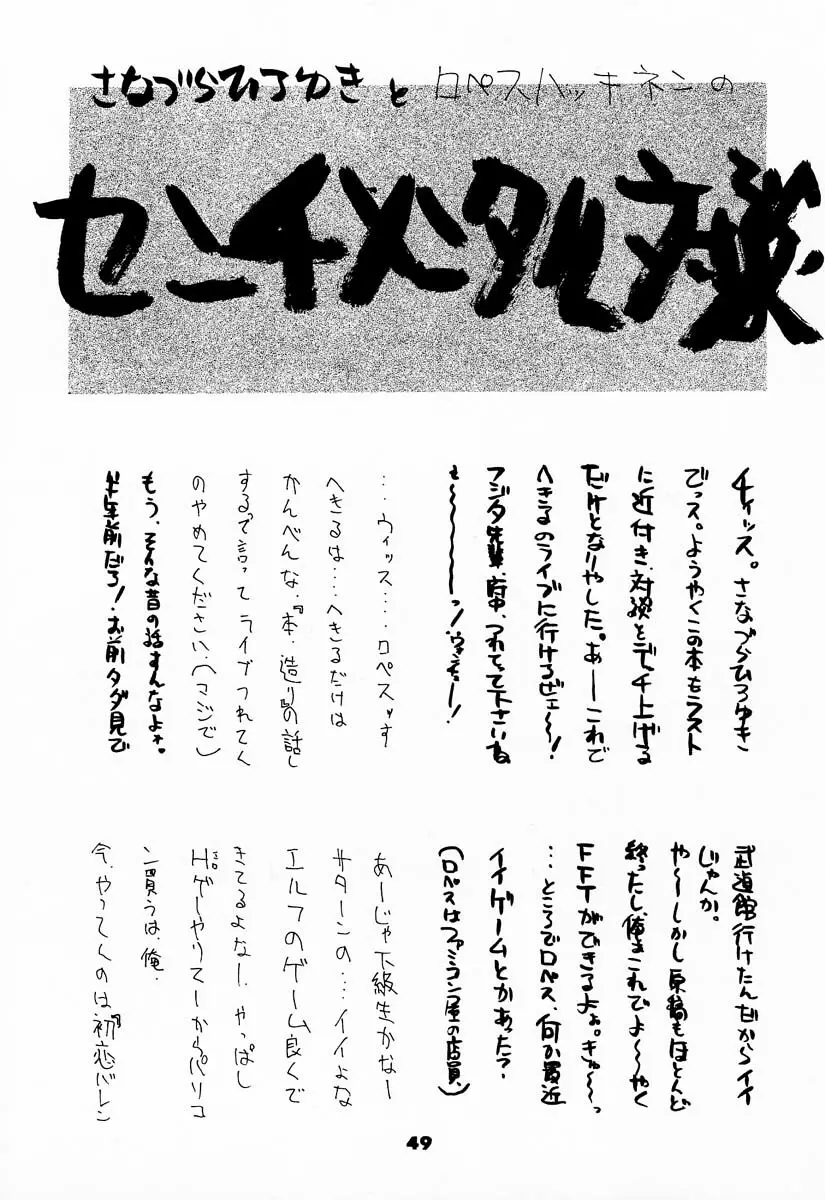 さなづらひろゆきとロペスハッキネンの
センチメンタル対談
チィッス。さなづらひろゆき
でっス。ようやくこの本もラスト
に近付き、対談とデッチ上げる
だけとなりやした。あーこれで
へきるのライブに行けるぜェ〜!
フジタ先輩、府中、つれてって下さいね
ェ〜〜〜〜〜っ!
…ウィッス…ロペスッす
へきるは…へきるだけは
かんべんな、『本、造り』の話し
するで言ってライブつれてく
のやめてください、(マジで)
もう、そんな昔の話すんなよォ。
半年前だろ!お前タダ見で
武道館行けたんだからイイ
じゃんか。
や〜〜しかし原稿もほとんど
終ったし、俺もこれでよ〜〜やく
FFTができるよぉ。きゅ〜〜っ
…ところでロペス、何か最近
イイゲームとかあった?
(ロペスはファミコン屋の店員)
あーじゃ下級生かなー
サターンの…イイよな
エルフのゲーム良くで
きてるよなー、やっぱし
Hゲーやりてーからパソコ
ン買うは、俺、
今、やってくのは『初恋バレン
49